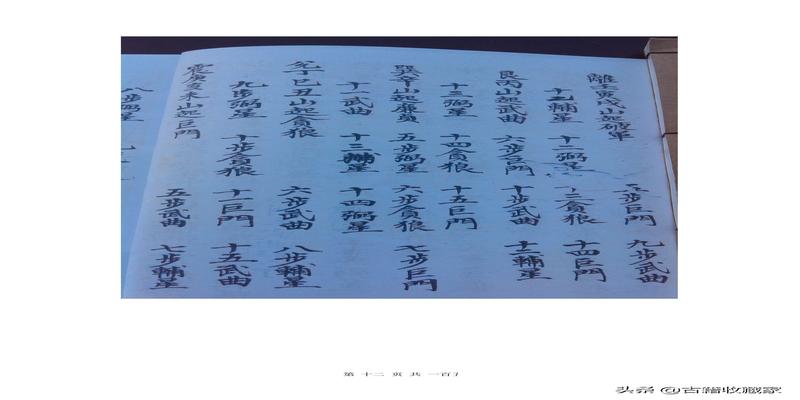 步巨門 九步武曲
離壬寅戌山起破軍
輔星 十二弼星 十三貪狼 十四巨門
艮丙山起武曲 六步巨門 十步武曲 十二輔星
十三弼星 十四貪狼 十五巨門
巽辛山起廉貞 五步弼星 六步貪狼 七步巨門
十一武曲 十三輔星 十四弼星
兌丁巳丑山起貪狼 六步武曲 八步輔星
九步弼星 十步貪狼 十一巨門 十五武曲
震庚亥未山起巨門 五步武曲 七步輔星
八步弼星
第 十二 页 共 一百
头条 @古籍收藏家